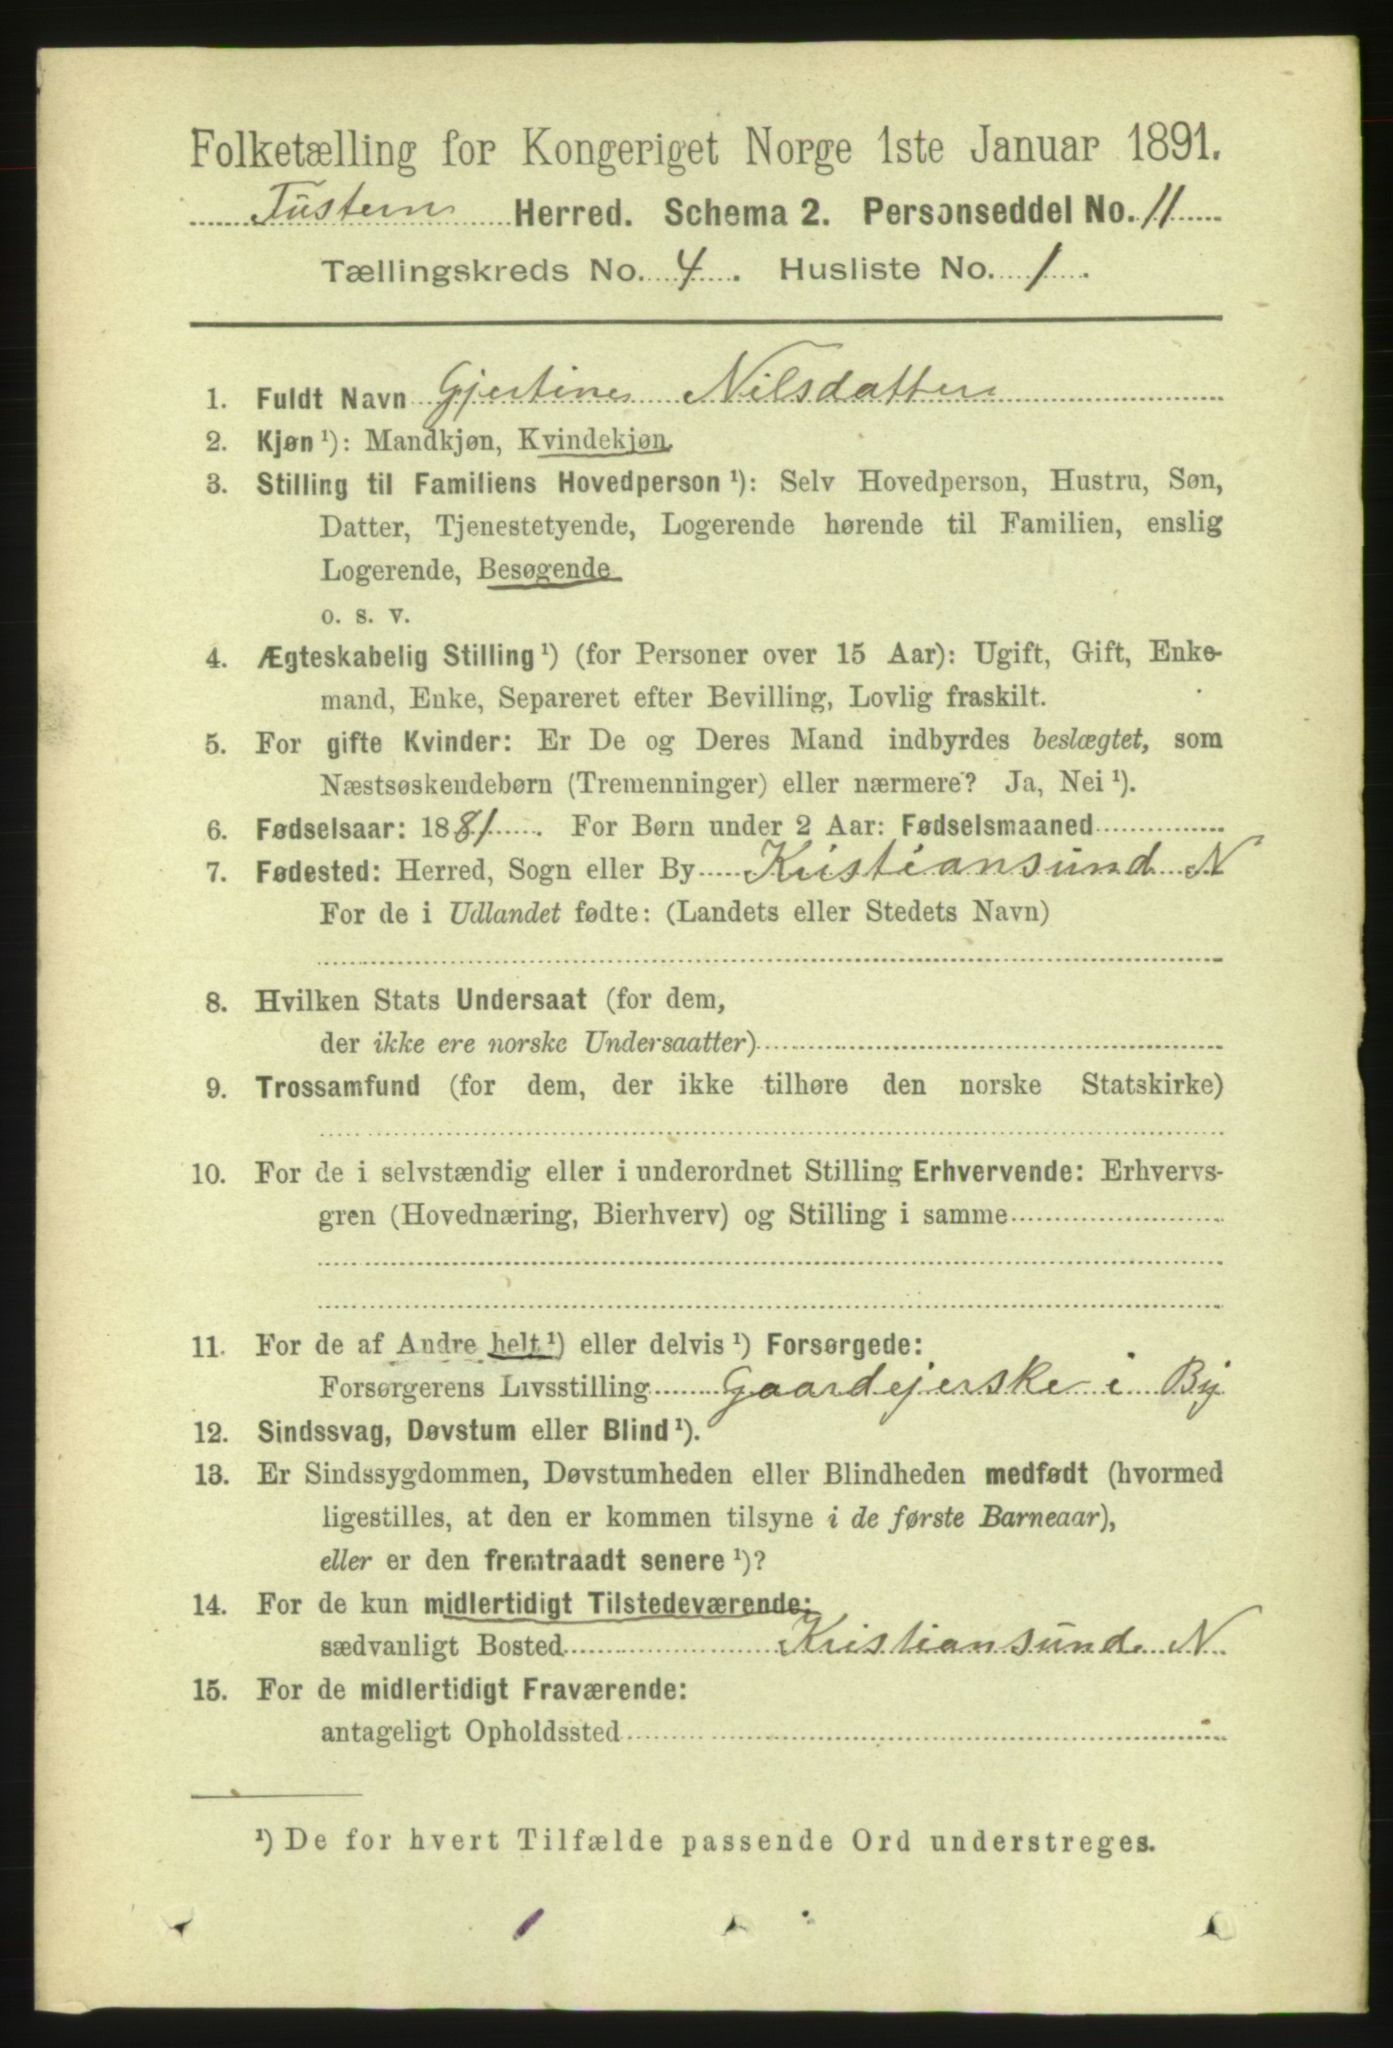 Folketælling for Kongeriget Norge 1ste Januar 1891.
Tustern Herred. Schema 2. Personseddel No. 11
Tællingskreds No. 4. Husliste No. 1.
1. Fuldt Navn Gjertine Nilsdatter
2. Kjøn ¹): Mandkjøn, Kvindekjøn
3. Stilling til Familiens Hovedperson ¹): Selv Hovedperson, Hustru, Søn,
Datter, Tjenestetyende, Logerende hørende til Familien, enslig
Logerende, Besøgende
o. s. v.
4. Ægteskabelig Stilling ¹) (for Personer over 15 Aar): Ugift, Gift, Enke-
mand, Enke, Separeret efter Bevilling, Lovlig fraskilt.
5. For gifte Kvinder: Er De og Deres Mand indbyrdes beslægtet, som
Næstsøskendebørn (Tremenninger) eller nærmere? Ja, Nei ¹).
6. Fødselsaar: 1881. For Børn under 2 Aar: Fødselsmaaned
7. Fødested: Herred, Sogn eller By Kristiansund N
For de i Udlandet fødte: (Landets eller Stedets Navn)
8. Hvilken Stats Undersaat (for dem,
der ikke ere norske Undersaatter)
9. Trossamfund (for dem, der ikke tilhøre den norske Statskirke)
10. For de i selvstændig eller i underordnet Stilling Erhvervende: Erhvervs-
gren (Hovednæring, Bierhverv) og Stilling i samme
11. For de af Andre helt ¹) eller delvis ¹) Forsørgede:
Forsørgerens Livsstilling Gaardejerske i By
12. Sindssvag, Døvstum eller Blind ¹).
13. Er Sindssygdommen, Døvstumheden eller Blindheden medfødt (hvormed
ligestilles, at den er kommen tilsyne i de første Barneaar),
eller er den fremtraadt senere ¹)?
14. For de kun midlertidigt Tilstedeværende:
sædvanligt Bosted Kristiansund N.
15. For de midlertidigt Fraværende:
antageligt Opholdssted
¹) De for hvert Tilfælde passende Ord understreges.